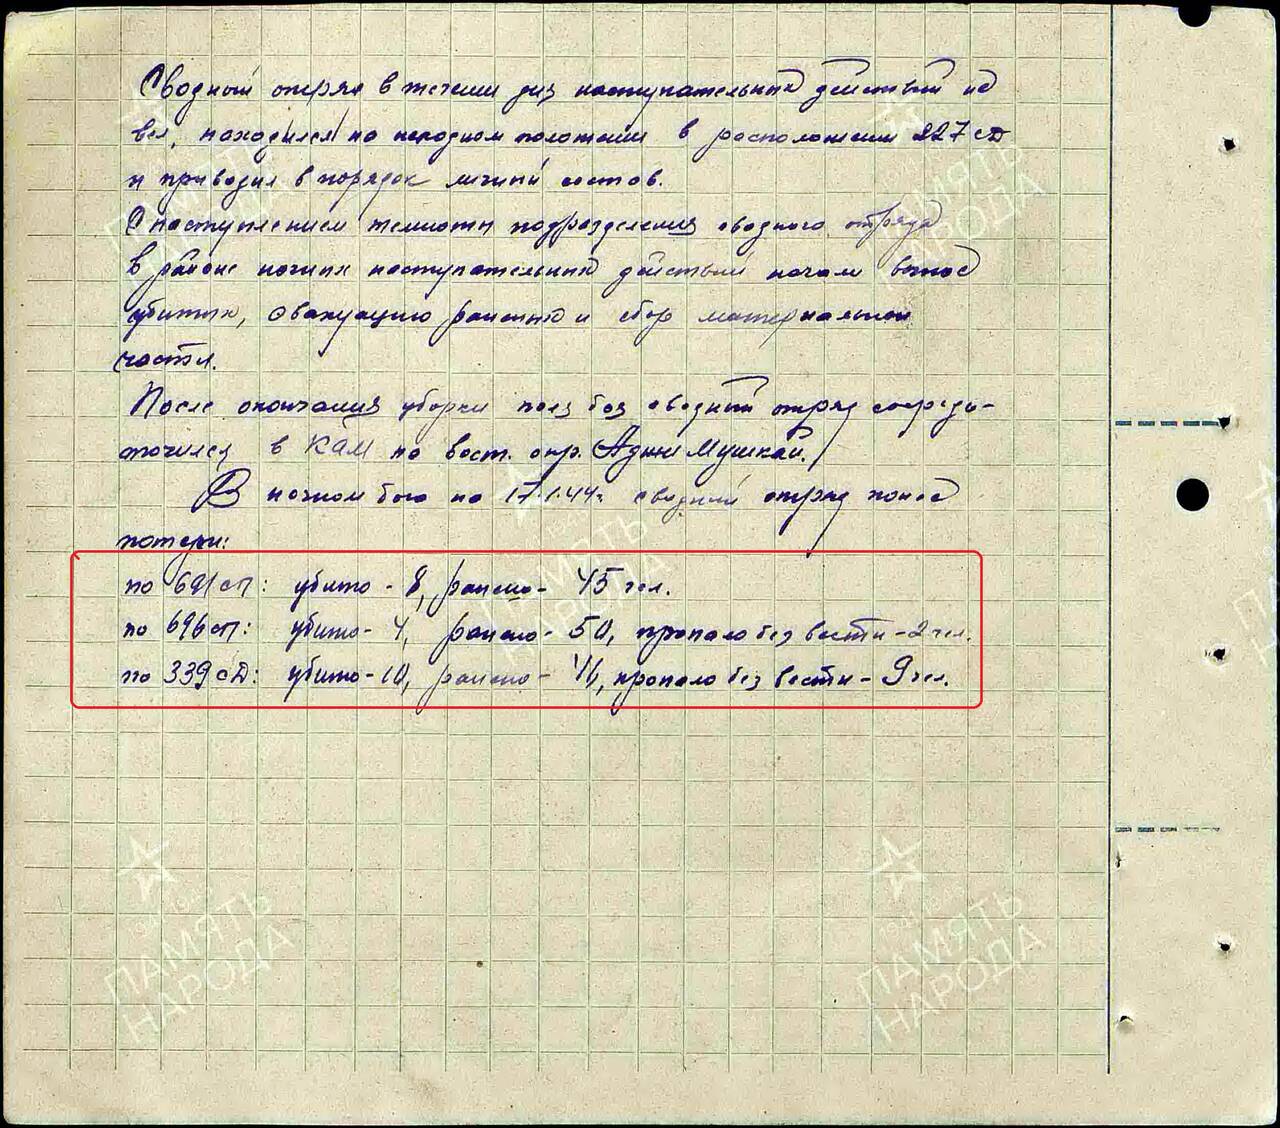 Сводный отряд в течении дня наступательных действий не
вел, находился на исходном положении в расположении 227 сд
и приводил в порядок личный состав.
С наступлением темноты подразделения сводного отряда
в районе ночных наступательных действий начали вынос
убитых, эвакуацию раненых и сбор материальной
части.
После окончания уборки поля боя сводный отряд сосредо-
точился в на вост. окр. Аджи Мушкай.
В ночном бою на 17.1.44г. сводный отряд понес
потери:
по 691сп: убито - 8, ранено - 45 чел.
по 696сп: убито - 4, ранено - 50, пропало без вести - 2 чел.
по 339 сд: убито - 10, ранено - 46, пропало без вести - 9 чел.
ПАМЯТЬ
НАРОДА
ПАМЯТЬ
НАРОДА
ПАМЯТЬ
НАРОДА
ПАМЯТЬ
НАРОДА
ПАМЯТЬ
НАРОДА